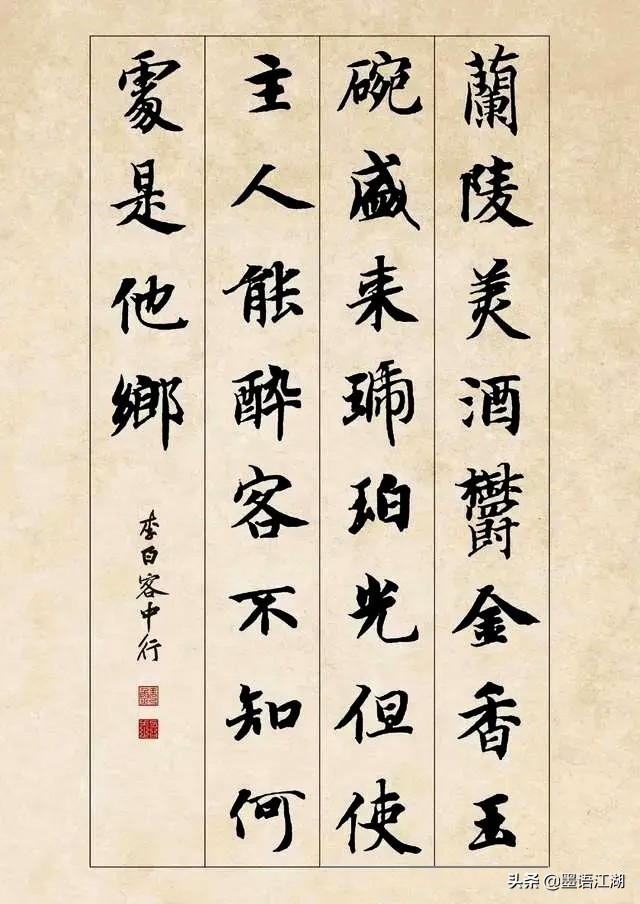 蘭陵美酒鬱金香玉
碗盛来琥珀光但使
主人能醉客不知何
處是他鄉
李白客中行
头条 @墨语江湖